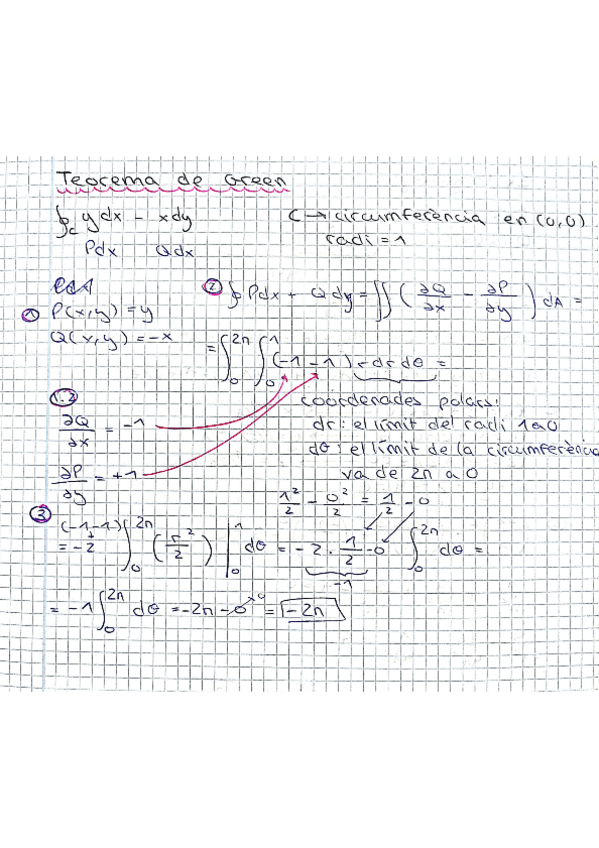 Teorema de Green
∮c ydx - xdy C → circumferència en (0,0)
Pdx Qdx radi = 1
① P(x,y) = y
Q(x,y) = -x
② ∮ Pdx + Qdy = ∬ (∂Q/∂x - ∂P/∂y) dA =
= ∫₀^2π ∫₀^1 (-1 - 1) r dr dθ =
1.2
∂Q/∂x = -1
∂P/∂y = +1
coordenades polars:
dr: el límit del radi 1 a 0
dθ: el límit de la circumferència
va de 2π a 0
1²/2 - 0²/2 = 1/2 - 0
③ (-1-1) = -2 ∫₀^2π (r²/2) |₀^1 dθ = -2 · 1/2 - 0 ∫₀^2π dθ =
-1
= -1 ∫₀^2π dθ = -2π - 0 = -2π